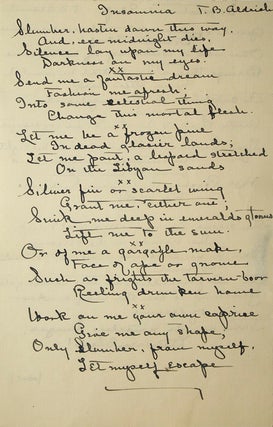 Insomnia T. B. Aldrich
Slumber, hasten down this way,
And, ere midnight dies,
Silence lay upon my lips
Darkness on my eyes.
xx
Send me a fantastic dream
Fashion me afresh;
Into some celestial thing
Change this mortal flesh.
xx
Let me be a frozen pine
In dead glacier lands;
Let me pant, a leopard stretched
On the Libyan sands
xx
Silver fin or scarlet wing
Grant me, either one;
Sink me deep in emerald glooms
Lift me to the sun.
xx
Or of me a gargoyle make,
Face of ape or gnome
Such as frights the tavern-boor
Reeling drunken home
xx
Work on me your own caprice
Give me any shape,
Only, slumber, from myself,
Let myself escape